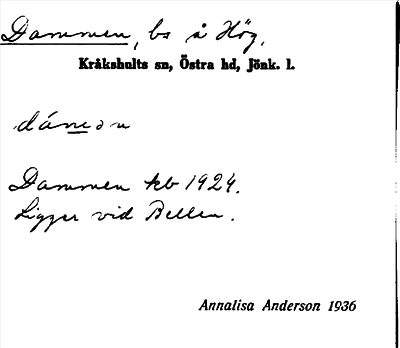 Dammen, bs å Hög.
Kråkshults sn, Östra hd, Jönk. l.
dámən
Dammen kb 1924.
Ligger vid Bellen.
Annalisa Anderson 1936